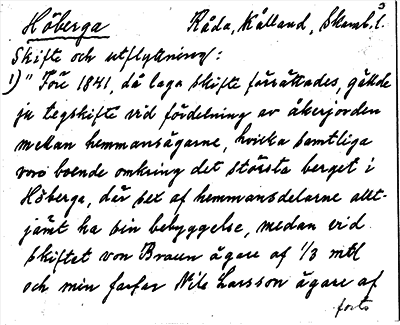 Höberga Råda, Kålland, Skarab. l. 3
Skifte och utflyttning:
1) "Före 1841, då laga skifte förrättades, gällde
ju tegskifte vid fördelning av åkerjorden
mellan hemmansägarne, hvilka samtliga
voro boende omkring det största berget i
Höberga, där sex af hemmansdelarne allt-
jämt ha sin bebyggelse, medan vid
skiftet von Braun ägare af 1/3 mtl
och min farfar Nils Larsson ägare af
forts